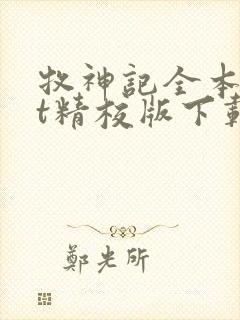 牧神記全本
t精校版下載
鄭光所